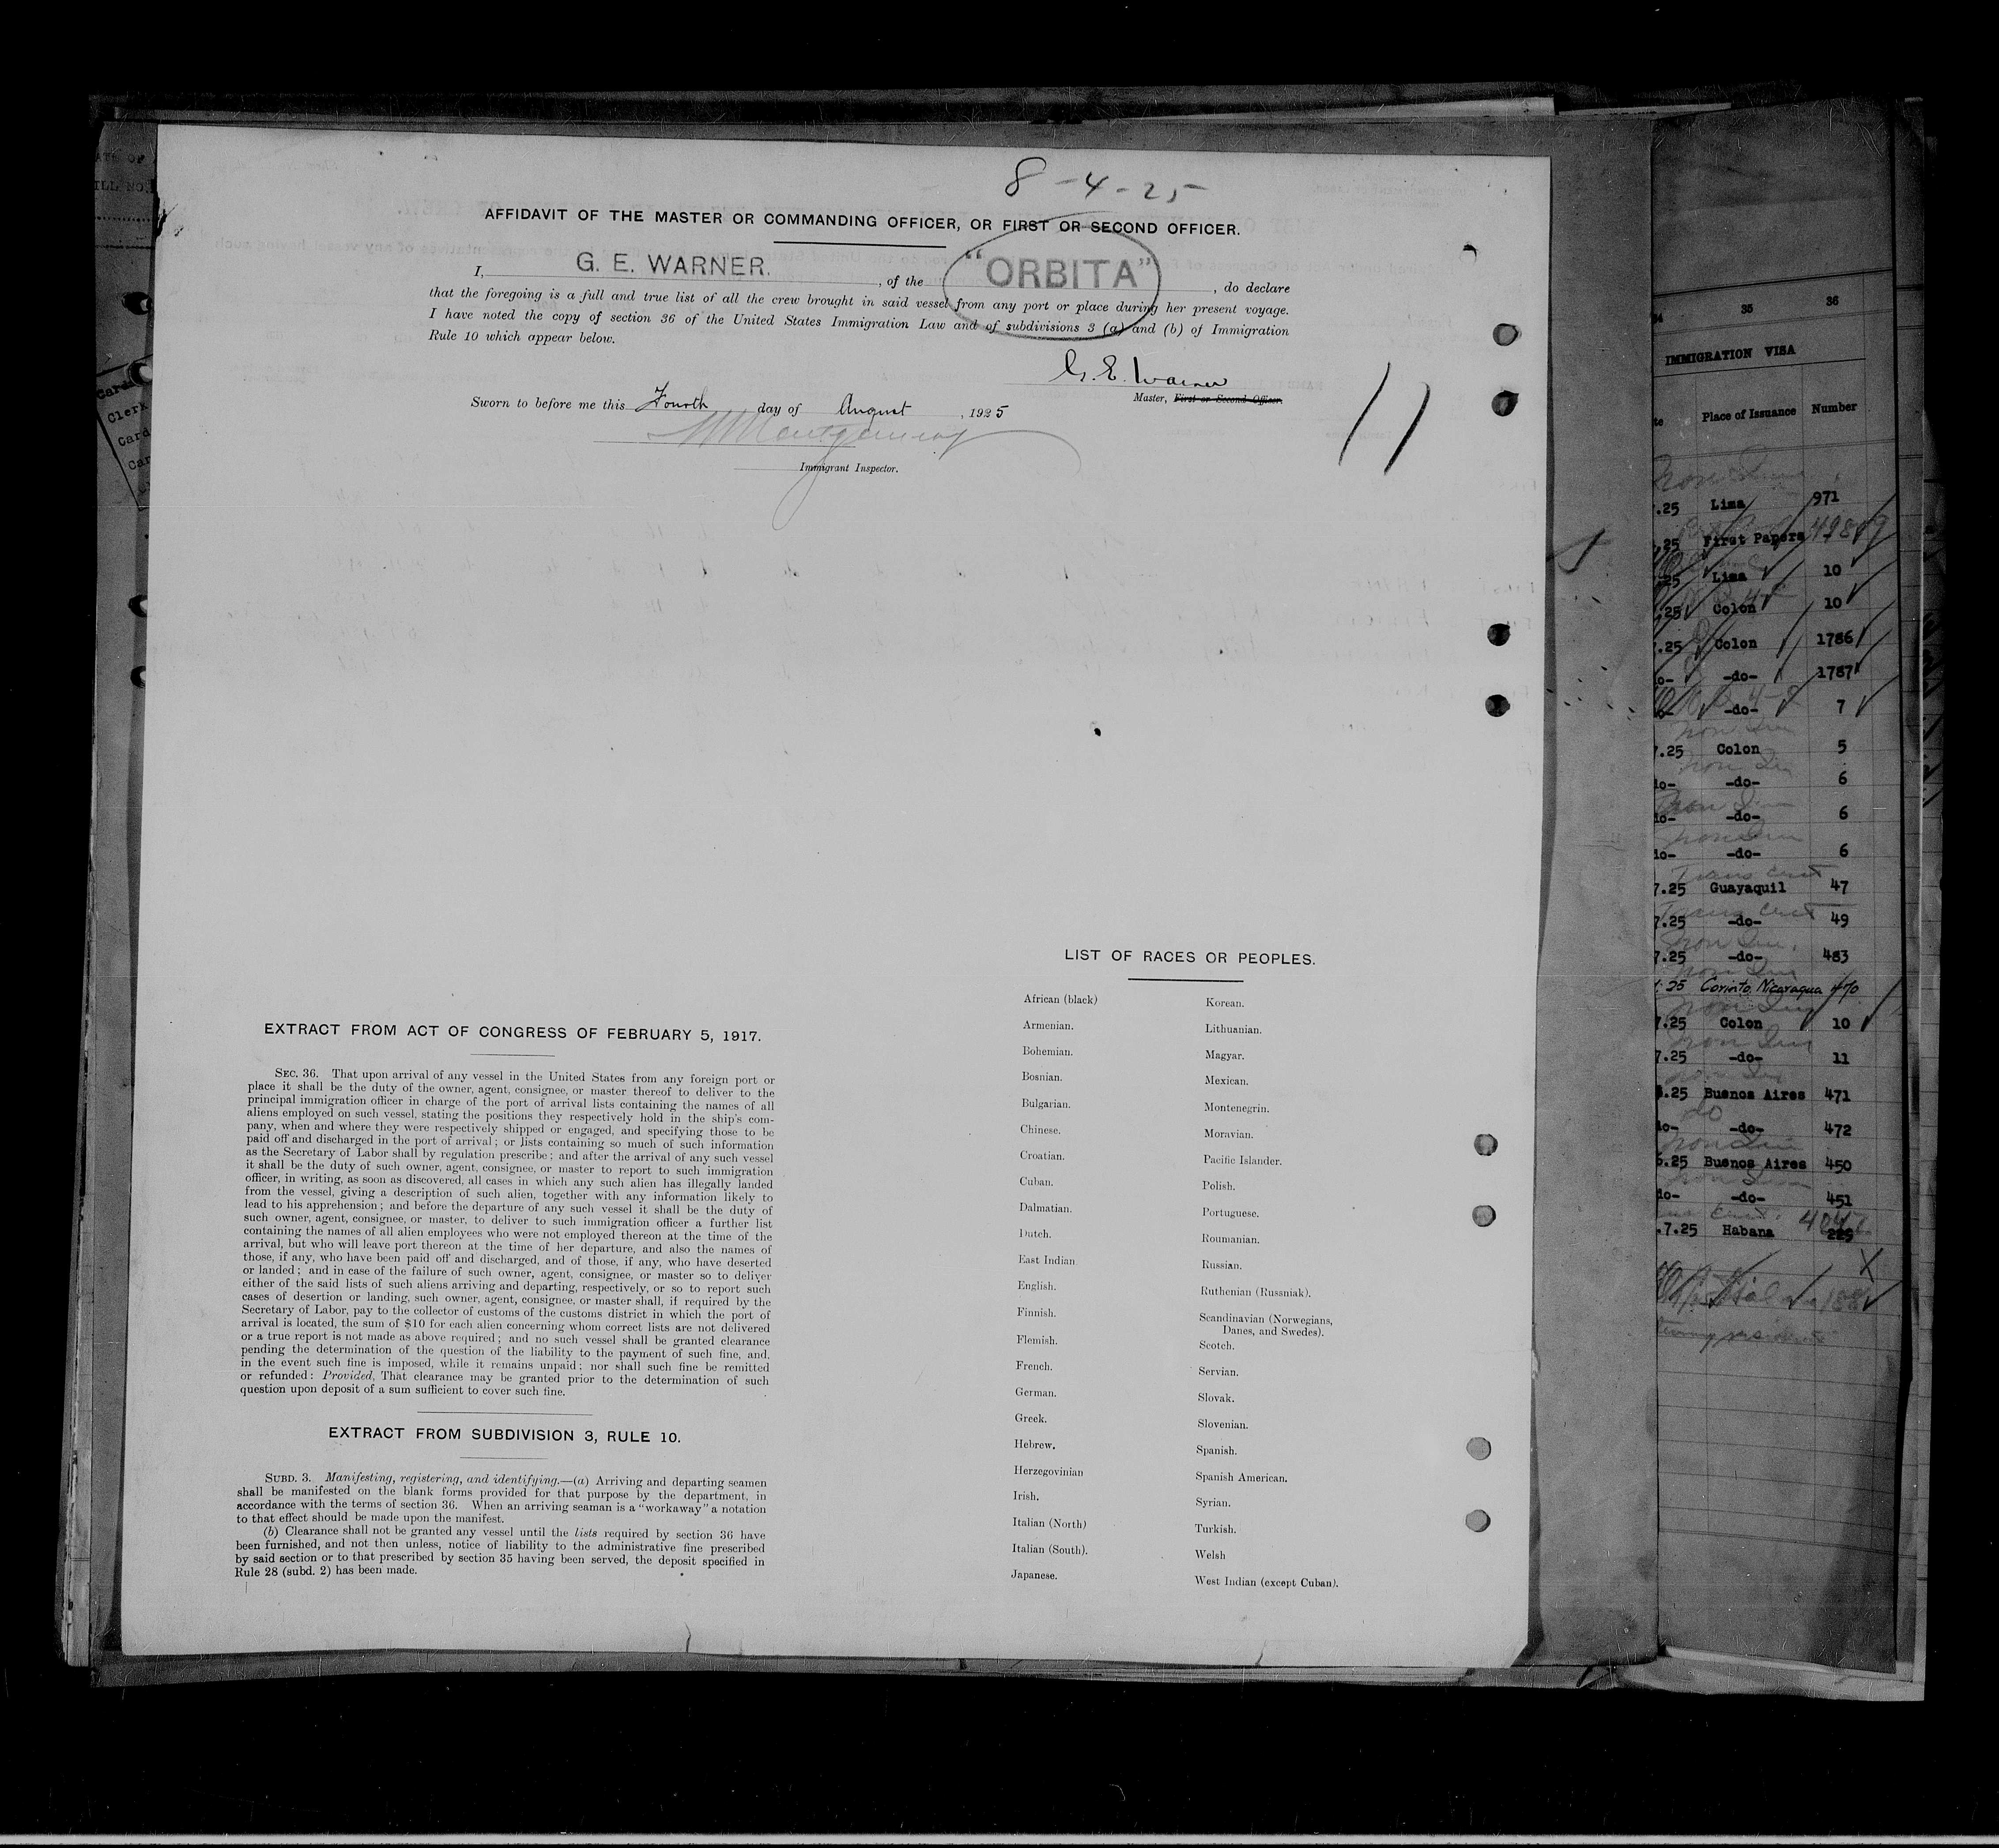 8-4-25
AFFIDAVIT OF THE MASTER OR COMMANDING OFFICER, OR FIRST OR SECOND OFFICER.
I, G. E. WARNER. , of the "ORBITA" , do declare
that the foregoing is a full and true list of all the crew brought in said vessel from any port or place during her present voyage.
I have noted the copy of section 36 of the United States Immigration Law and of subdivisions 3 (a) and (b) of Immigration
Rule 10 which appear below.
G. E. Warner
Master, First or Second Officer.
Sworn to before me this Fourth day of August , 1925
Immigrant Inspector.
11
EXTRACT FROM ACT OF CONGRESS OF FEBRUARY 5, 1917.
SEC. 36. That upon arrival of any vessel in the United States from any foreign port or
place it shall be the duty of the owner, agent, consignee, or master thereof to deliver to the
principal immigration officer in charge of the port of arrival lists containing the names of all
aliens employed on such vessel, stating the positions they respectively hold in the ship's com-
pany, when and where they were respectively shipped or engaged, and specifying those to be
paid off and discharged in the port of arrival; or lists containing so much of such information
as the Secretary of Labor shall by regulation prescribe; and after the arrival of any such vessel
it shall be the duty of such owner, agent, consignee, or master to report to such immigration
officer, in writing, as soon as discovered, all cases in which any such alien has illegally landed
from the vessel, giving a description of such alien, together with any information likely to
lead to his apprehension; and before the departure of any such vessel it shall be the duty of
such owner, agent, consignee, or master, to deliver to such immigration officer a further list
containing the names of all alien employees who were not employed thereon at the time of the
arrival, but who will leave port thereon at the time of her departure, and also the names of
those, if any, who have been paid off and discharged, and of those, if any, who have deserted
or landed; and in case of the failure of such owner, agent, consignee, or master so to deliver
either of the said lists of such aliens arriving and departing, respectively, or so to report such
cases of desertion or landing, such owner, agent, consignee, or master shall, if required by the
Secretary of Labor, pay to the collector of customs of the customs district in which the port of
arrival is located, the sum of $10 for each alien concerning whom correct lists are not delivered
or a true report is not made as above required; and no such vessel shall be granted clearance
pending the determination of the question of the liability to the payment of such fine, and,
in the event such fine is imposed, while it remains unpaid; nor shall such fine be remitted
or refunded: Provided, That clearance may be granted prior to the determination of such
question upon deposit of a sum sufficient to cover such fine.
EXTRACT FROM SUBDIVISION 3, RULE 10.
SUBD. 3. Manifesting, registering, and identifying.—(a) Arriving and departing seamen
shall be manifested on the blank forms provided for that purpose by the department, in
accordance with the terms of section 36. When an arriving seaman is a "workaway" a notation
to that effect should be made upon the manifest.
(b) Clearance shall not be granted any vessel until the lists required by section 36 have
been furnished, and not then unless, notice of liability to the administrative fine prescribed
by said section or to that prescribed by section 35 having been served, the deposit specified in
Rule 28 (subd. 2) has been made.
LIST OF RACES OR PEOPLES.
African (black)
Armenian.
Bohemian.
Bosnian.
Bulgarian.
Chinese.
Croatian.
Cuban.
Dalmatian.
Dutch.
East Indian
English.
Finnish.
Flemish.
French.
German.
Greek.
Hebrew.
Herzegovinian
Irish.
Italian (North)
Italian (South).
Japanese.
Korean.
Lithuanian.
Magyar.
Mexican.
Montenegrin.
Moravian.
Pacific Islander.
Polish.
Portuguese.
Roumanian.
Russian.
Ruthenian (Russniak).
Scandinavian (Norwegians,
Danes, and Swedes).
Scotch.
Servian.
Slovak.
Slovenian.
Spanish.
Spanish American.
Syrian.
Turkish.
Welsh
West Indian (except Cuban).
35 36
IMMIGRATION VISA
Place of Issuance Number
.25 Lima 971
.25 First Papers
.25 Lima 10
.25 Colon 10
.25 Colon 1786
-do- 1787
-do- 7
7.25 Colon 5
-do- 6
-do- 6
-do- 6
7.25 Guayaquil 47
7.25 -do- 49
7.25 -do- 483
.25 Corinto Nicaragua
7.25 Colon 10
7.25 -do- 11
.25 Buenos Aires 471
-do- 472
.25 Buenos Aires 450
-do- 451
.7.25 Habana